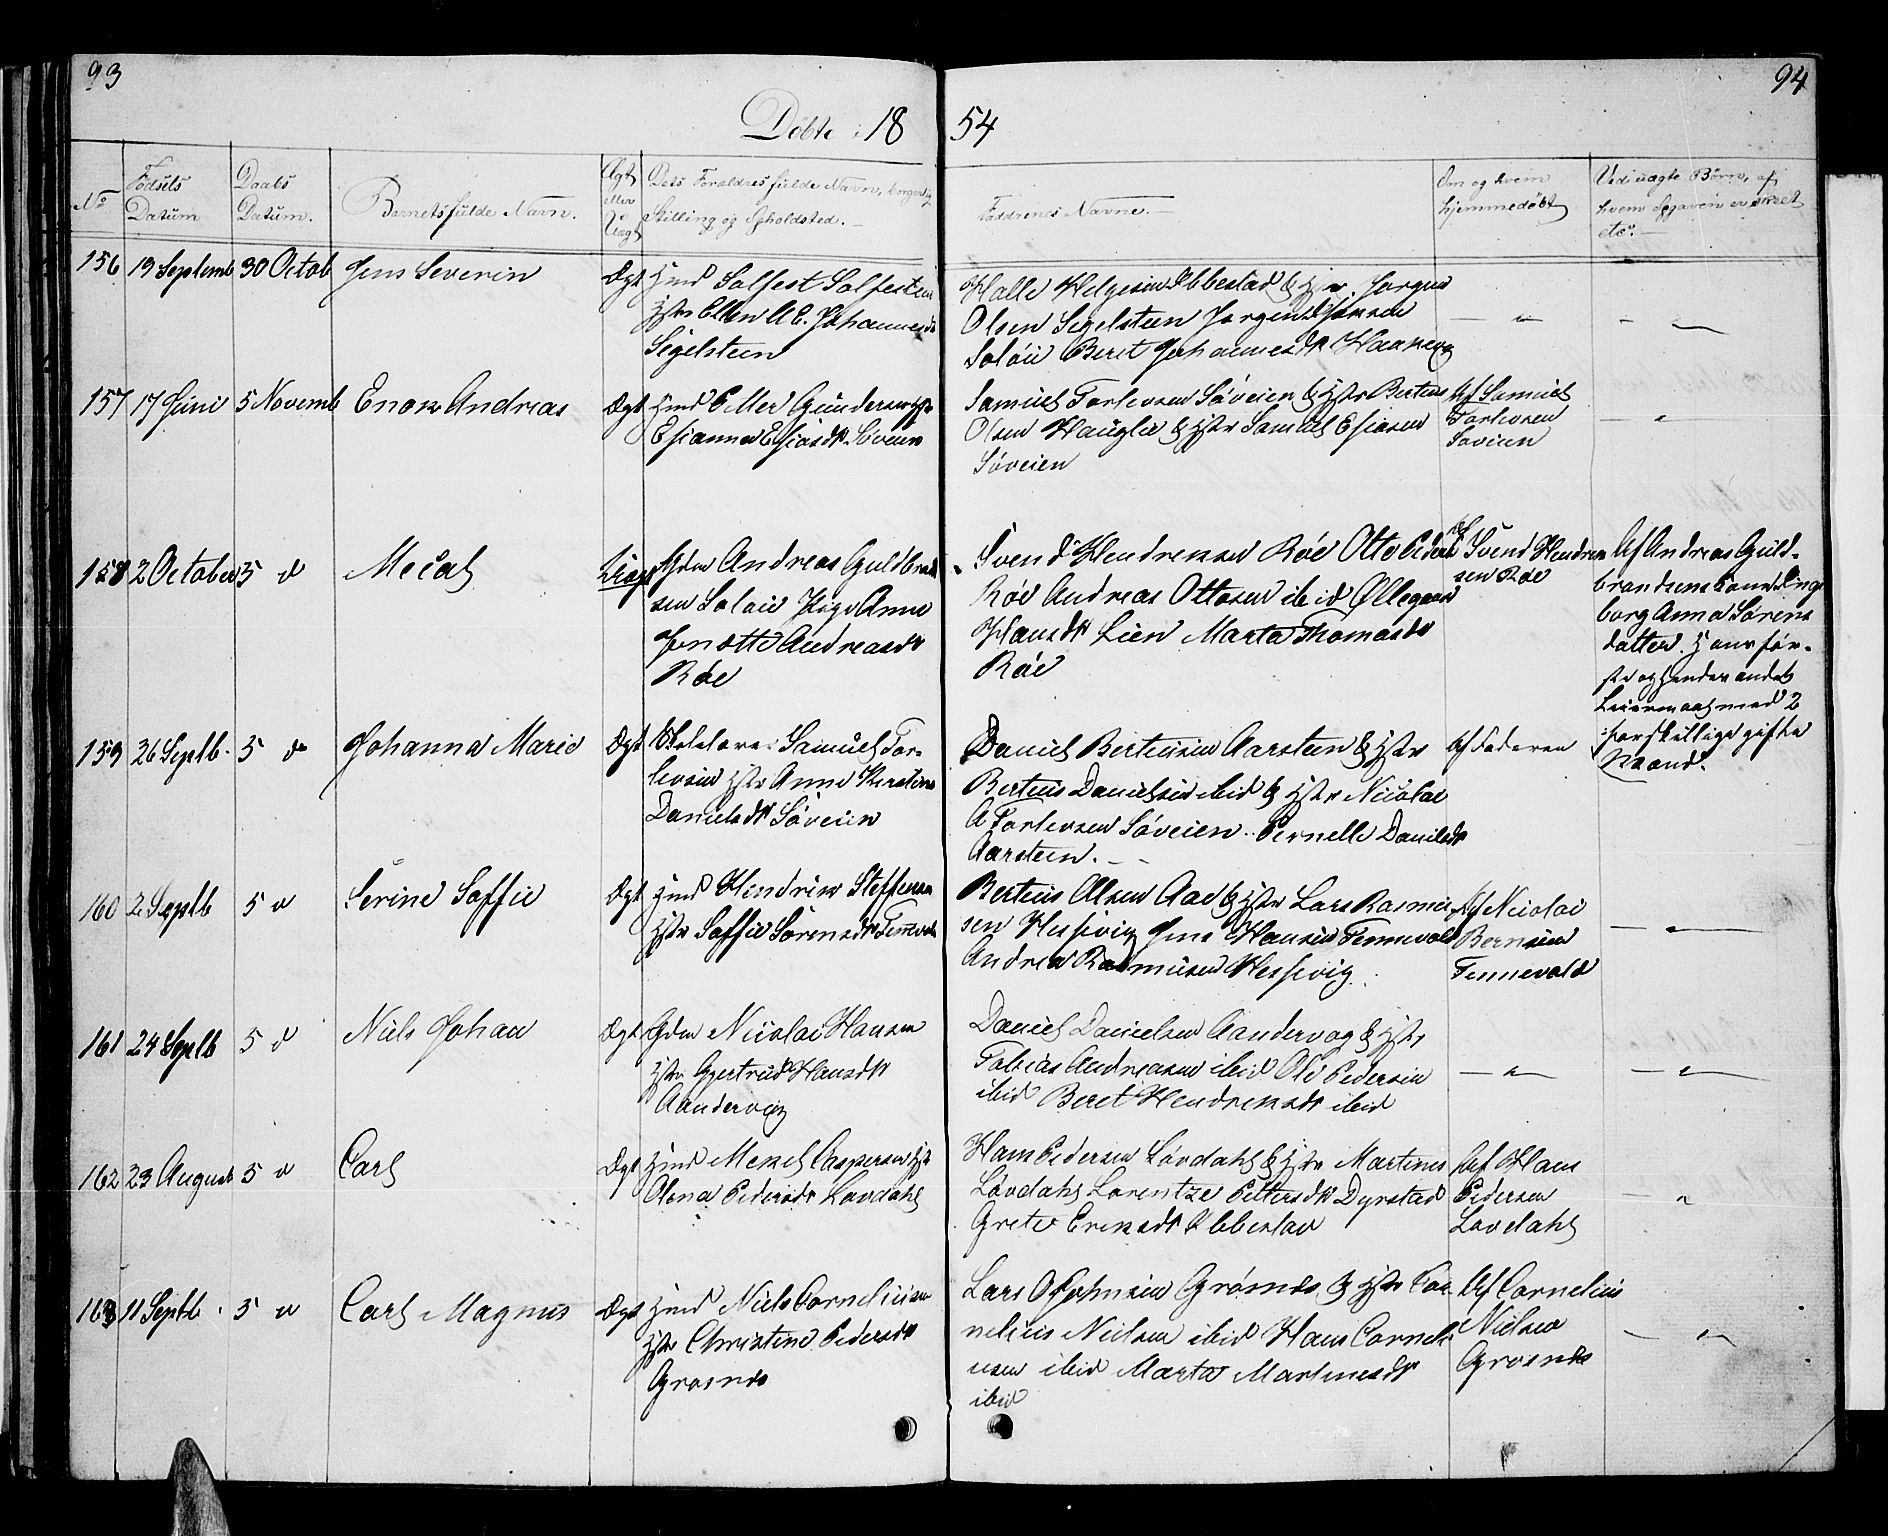 93
94
Döbte 18 54
No
Fødsels Datum
Daabs Datum.
Barnets fulde Navn.
Ægt eller Uægt
Dets Forældres fulde Navn, borgerlig Stilling og Opholdsted.
Faddrenes Navne.
Om og hvem hjemmedøbt
Ved uægte Børn, af hvem Opgaven er skeet etc.
156 19 Septemb 30 Octob Jens Severin Ægt Hmd Salfest Salfestsen
Hstr Ellen A E. Johannesdt
Segelsteen
Halle Helgesen Ibbestad & Hstr. Jørgen
Olsen Segelsteen Jørgen Hansen
Soløii Beret Johannesdt Haanevg
157 17 Juni 5 Novemb Enok Andreas Ægt Hmd Peller Gundersen Hstr
Esianna Esiasdt. Søveien
Samuel Torlevsen Søveien & Hstr Berteus
Olsen Hauglie & Hstr Samuel Esiasen
Søveien
Af Samuel
Torlevsen
Søveien
158 2 October 5 d Mecal Uægt Gdm Andreas Guldbrand
sen Soløii Pige Anne
Jonette Andreasdt
Røe
Svend Hendriksen Røe Otto Peders
Røe Andreas Ottosen ibid Øllegaard
Hansdt Lien Marta Thomasdt
Røe
Af Svend Hendrik
sen Røe
Af Andreas Guld-
brandsens kone Inge
borg Anna Sørens
datter. Hans før-
ste og hendes andet
Leiermaal med 2
forskellige gifte
Mænd.
159 26 Septb. 5 d Johanna Marie Ægt Skolelærer Samuel Tor-
levsen Hstr Anne Kerstine
Danielsdt Søveien
Daniel Berteusen Aarsteen & Hstr
Berteus Danielsen ibid & Hstr Nicolai
A Torlevsen Søveien. Pernelle Danielsdt
Aarsteen.
Af Faderen
160 2 Septb 5 d Serine Soffie Ægt Hmd Hendrik Steffensen
Hstr Soffie Sørensdt Tennevold
Berteus Olsen Aae & Hstr Lars Rasmus
sen Hessevig Jens Hansen Tennevold
Andrea Rasmusen Hessevig
Af Nicolai
Bernsen
Tennevold
161 24 Septb 5 d Niels Johan Ægt Gdm Nicolai Hansen
Hstr Gjertrud Hansdt
Aandervag
Daniel Danielsen Aandervag & Hstr
Tobias Andreasen ibid Ole Pedersen
ibid Beret Hendriksdt ibid
162 23 August 5 d Carl Ægt Hmd Mekel Caspersen Hstr
Olena Pedersdt Løvdahl
Hans Pedersen Løvdahl & Hstr Martines
Løvdahl Lorentze Pettersdt Dyrstad
Grete Eriksdt Ibbestad
Af Hans
Pedersen
Løvdahl
163 11 Septb. 5 d Carl Magnus Ægt Hmd Niels Corneliusen
Hstr Christine Pedersdt
Grøsnes
Lars O Johnsen Grøsnes & Hstr Cor
nelius Nielsen ibid Hans Corneli
usen ibid Marta Martinesdt
ibid
Af Cornelius
Nielsen
Grøsnes